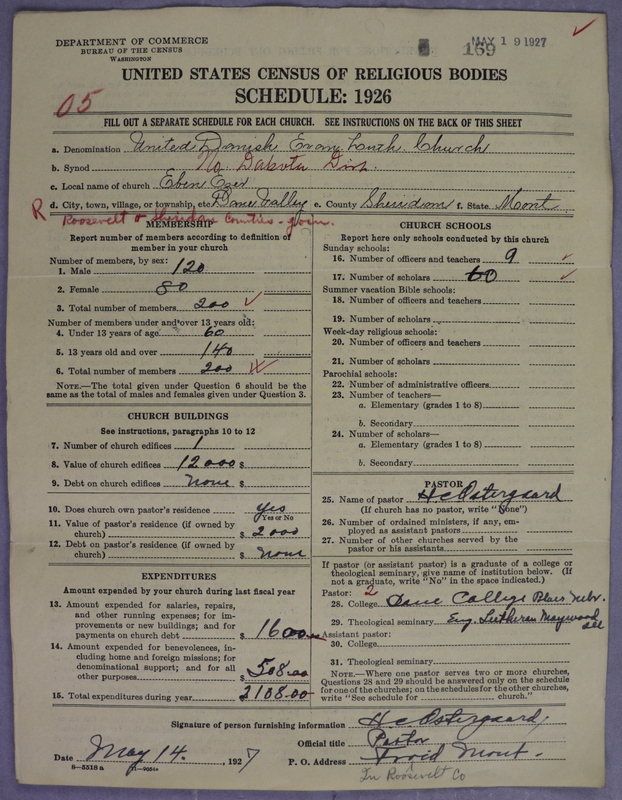 DEPARTMENT OF COMMERCE
BUREAU OF THE CENSUS
WASHINGTON
169
MAY 19 1927
UNITED STATES CENSUS OF RELIGIOUS BODIES
SCHEDULE: 1926
05
FILL OUT A SEPARATE SCHEDULE FOR EACH CHURCH. SEE INSTRUCTIONS ON THE BACK OF THIS SHEET
a. Denomination United Danish Evan Luth Church
b. Synod No. Dakota Dist.
c. Local name of church Eben Ezer
d. City, town, village, or township, etc Dane Valley e. County Sheridan f. State Mont
R Roosevelt & Sheridan Counties - join.
MEMBERSHIP
Report number of members according to definition of
member in your church
Number of members, by sex:
1. Male 120
2. Female 80
3. Total number of members 200
Number of members under and over 13 years old:
4. Under 13 years of age 60
5. 13 years old and over 140
6. Total number of members 200
NOTE.—The total given under Question 6 should be the
same as the total of males and females given under Question 3.
CHURCH BUILDINGS
See instructions, paragraphs 10 to 12
7. Number of church edifices 1
8. Value of church edifices 12000 $
9. Debt on church edifices none $
10. Does church own pastor's residence yes
Yes or No
11. Value of pastor's residence (if owned by
church) $ 2000
12. Debt on pastor's residence (if owned by
church) $ none
EXPENDITURES
Amount expended by your church during last fiscal year
13. Amount expended for salaries, repairs,
and other running expenses; for im-
provements or new buildings; and for
payments on church debt $ 1600.00
14. Amount expended for benevolences, in-
cluding home and foreign missions; for
denominational support; and for all
other purposes $ 508.00
15. Total expenditures during year 2108.00
CHURCH SCHOOLS
Report here only schools conducted by this church
Sunday schools:
16. Number of officers and teachers 9
17. Number of scholars 60
Summer vacation Bible schools:
18. Number of officers and teachers
19. Number of scholars
Week-day religious schools:
20. Number of officers and teachers
21. Number of scholars
Parochial schools:
22. Number of administrative officers
23. Number of teachers—
a. Elementary (grades 1 to 8)
b. Secondary
24. Number of scholars—
a. Elementary (grades 1 to 8)
b. Secondary
PASTOR
25. Name of pastor H C Ostergaard
(If church has no pastor, write "None")
26. Number of ordained ministers, if any, em-
ployed as assistant pastors
27. Number of other churches served by the
pastor or his assistants
If pastor (or assistant pastor) is a graduate of a college or
theological seminary, give name of institution below. (If
not a graduate, write "No" in the space indicated.)
Pastor: 2
28. College Dane College Blair Nebr.
29. Theological seminary Eng. Lutheran Maywood Ill
Assistant pastor:
30. College
31. Theological seminary
NOTE.—Where one pastor serves two or more churches,
Questions 28 and 29 should be answered only on the schedule
for one of the churches; on the schedules for the other churches,
write "See schedule for church."
Signature of person furnishing information H C Ostergaard,
Official title Pastor
Date May 14. 1927 P. O. Address Froid Mont.
8—5518 a
In Roosevelt Co